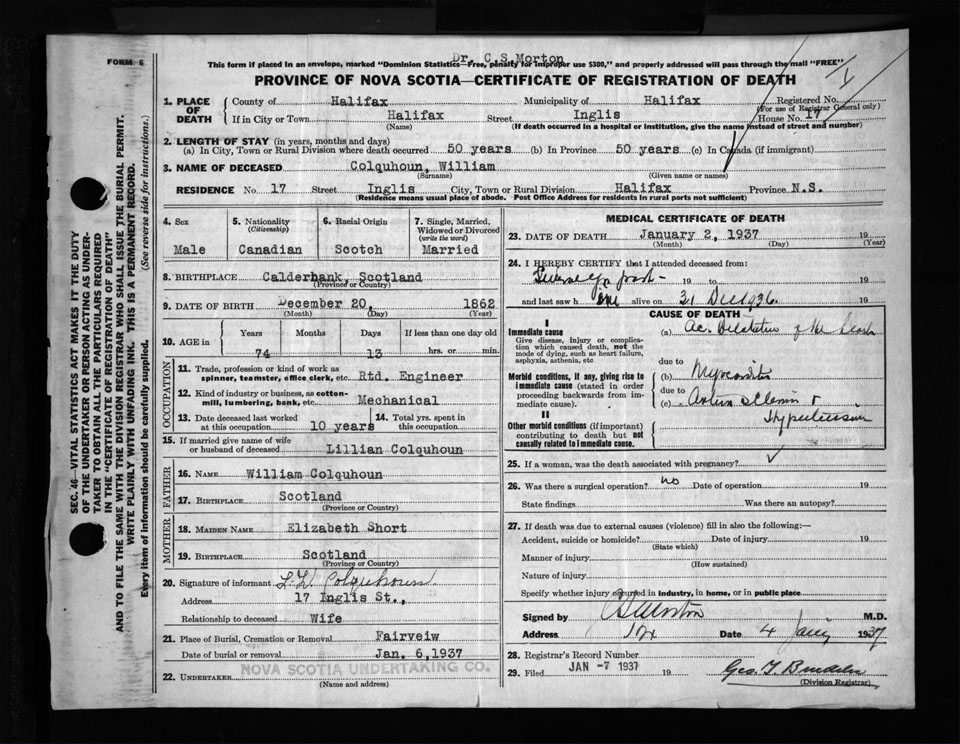 FORM 6
Dr. C.S.Morton
This form if placed in an envelope, marked "Dominion Statistics—Free, penalty for improper use $300," and properly addressed will pass through the mail "FREE"
PROVINCE OF NOVA SCOTIA—CERTIFICATE OF REGISTRATION OF DEATH
SEC. 46—VITAL STATISTICS ACT MAKES IT THE DUTY
OF THE UNDERTAKER OR PERSON ACTING AS UNDER-
TAKER TO OBTAIN ALL THE PARTICULARS REQUIRED
IN THE "CERTIFICATE OF REGISTRATION OF DEATH"
AND TO FILE THE SAME WITH THE DIVISION REGISTRAR WHO SHALL ISSUE THE BURIAL PERMIT.
WRITE PLAINLY WITH UNFADING INK. THIS IS A PERMANENT RECORD.
Every item of information should be carefully supplied. (See reverse side for instructions.)
1. PLACE OF DEATH County of Halifax Municipality of Halifax Registered No.
(For use of Registrar General only)
If in City or Town Halifax Street Inglis House No. 17
(Name) (If death occurred in a hospital or institution, give the name instead of street and number)
2. LENGTH OF STAY (in years, months and days)
(a) In City, Town or Rural Division where death occurred 50 years (b) In Province 50 years (c) In Canada (if immigrant)
3. NAME OF DECEASED Colquhoun, William
(Surname) (Given name or names)
RESIDENCE No. 17 Street Inglis City, Town or Rural Division Halifax Province N.S.
(Residence means usual place of abode. Post Office Address for residents in rural parts not sufficient)
4. Sex
Male
5. Nationality
(Citizenship)
Canadian
6. Racial Origin
Scotch
7. Single, Married,
Widowed or Divorced
(write the word)
Married
8. BIRTHPLACE Calderbank, Scotland
(Province or Country)
9. DATE OF BIRTH December 20, 1862
(Month) (Day) (Year)
10. AGE in Years Months Days If less than one day old
74 13 hrs. or min.
OCCUPATION
11. Trade, profession or kind of work as
spinner, teamster, office clerk, etc. Rtd. Engineer
12. Kind of industry or business, as cotton-
mill, lumbering, bank, etc. Mechanical
13. Date deceased last worked
at this occupation 10 years
14. Total yrs. spent in
this occupation
15. If married give name of wife
or husband of deceased Lillian Colquhoun
FATHER
16. NAME William Colquhoun
17. BIRTHPLACE Scotland
(Province or Country)
MOTHER
18. MAIDEN NAME Elizabeth Short
19. BIRTHPLACE Scotland
(Province or Country)
20. Signature of informant Colquhoun
Address 17 Inglis St.,
Relationship to deceased Wife
21. Place of Burial, Cremation or Removal Fairveiw
Date of burial or removal Jan. 6,1937
22. UNDERTAKER NOVA SCOTIA UNDERTAKING CO.
(Name and address)
MEDICAL CERTIFICATE OF DEATH
23. DATE OF DEATH January 2, 1937 19
(Month) (Day) (Year)
24. I HEREBY CERTIFY that I attended deceased from:
19 to 19
and last saw him alive on 31 Dec 1936. 19
CAUSE OF DEATH
I
Immediate cause
Give disease, injury or complica-
tion which caused death, not the
mode of dying, such as heart failure,
asphyxia, asthenia, etc
(a) Ac. Dilatation of the heart
due to
Morbid conditions, if any, giving rise to
immediate cause (stated in order
proceeding backwards from im-
mediate cause).
(b) Myocarditis
due to
(c)
Hypertension
II
Other morbid conditions (if important)
contributing to death but not
causally related to immediate cause.
25. If a woman, was the death associated with pregnancy?
26. Was there a surgical operation? no Date of operation 19
State findings Was there an autopsy?
27. If death was due to external causes (violence) fill in also the following:—
Accident, suicide or homicide? Date of injury 19
(State which)
Manner of injury
(How sustained)
Nature of injury
Specify whether injury occurred in industry, in home, or in public place
Signed by CSMorton M.D.
Address Date 4 1937
28. Registrar's Record Number
29. Filed JAN -7 1937 19
(Division Registrar)